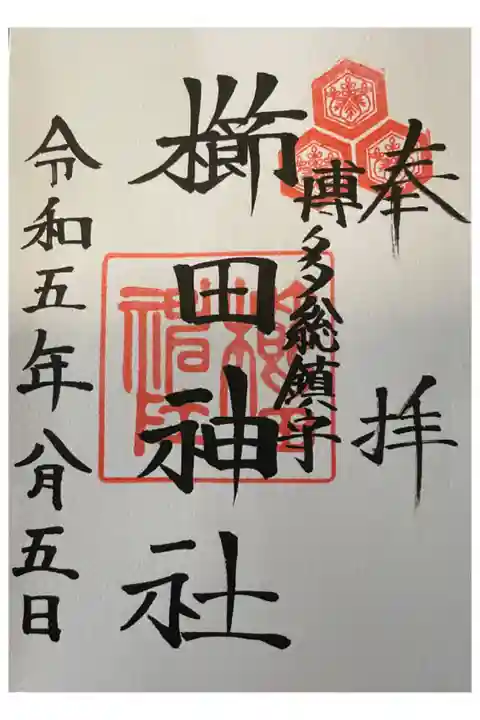 奉拝
博多總鎮守
櫛田神社
令和五年八月五日